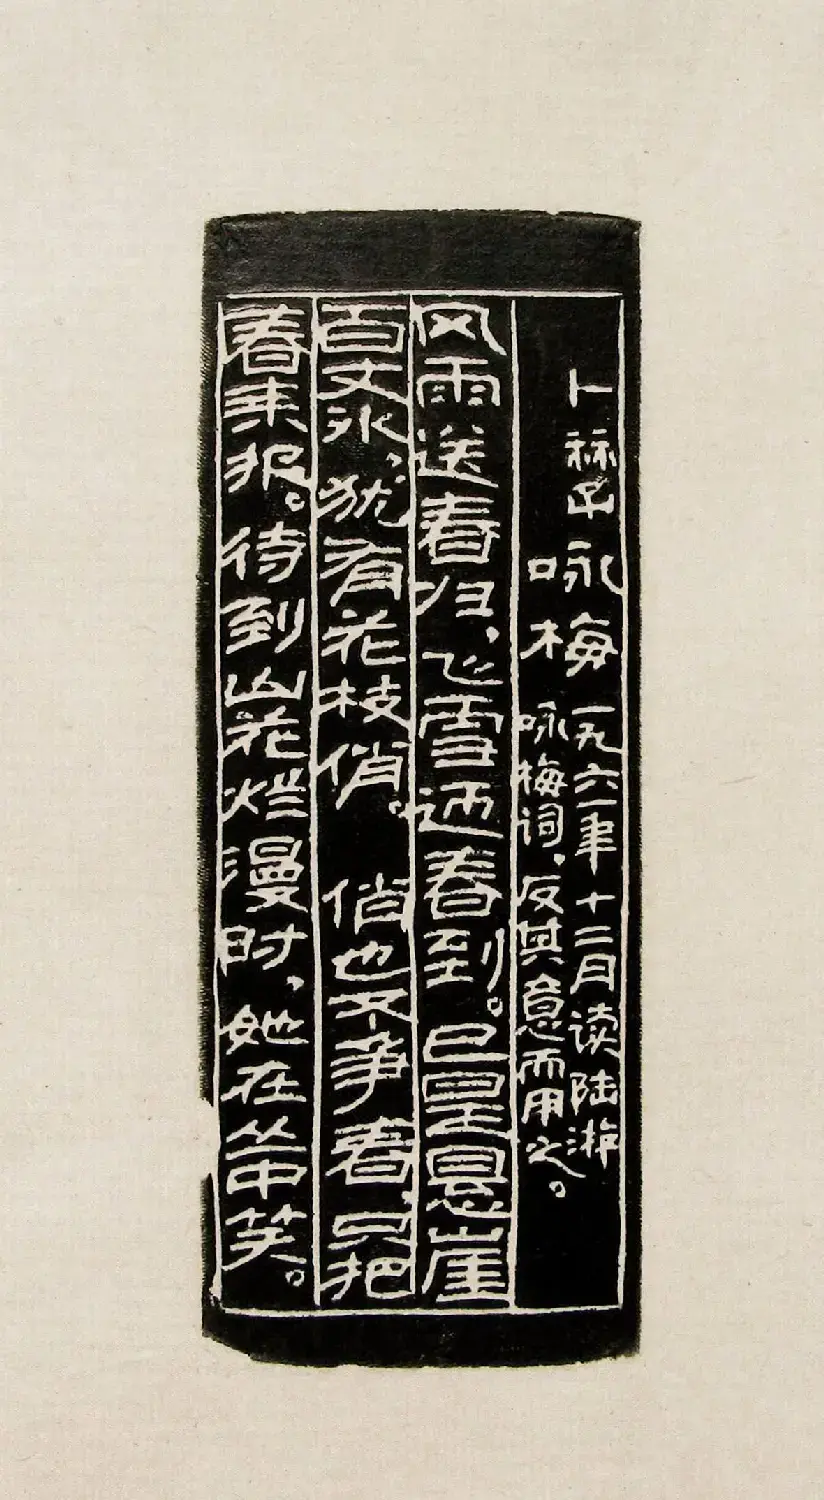 卜祘子 咏梅 一九六一年十二月读陆游
咏梅词,反其意而用之。
风雨送春归,飞雪迎春到。已是悬崖
百丈冰,犹有花枝俏。 俏也不争春,只把
春来报。待到山花烂漫时,她在丛中笑。